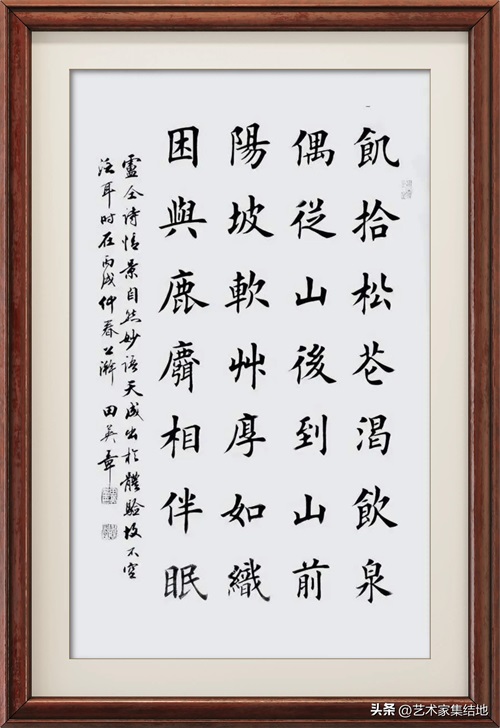 飢拾松花渴飲泉
偶從山後到山前
陽坡軟艸厚如織
困與鹿麛相伴眠
盧仝詩情景自然妙語天成出於體驗故不空
泛耳時在丙戌仲春上澣 田英章
头条 @艺术家集结地